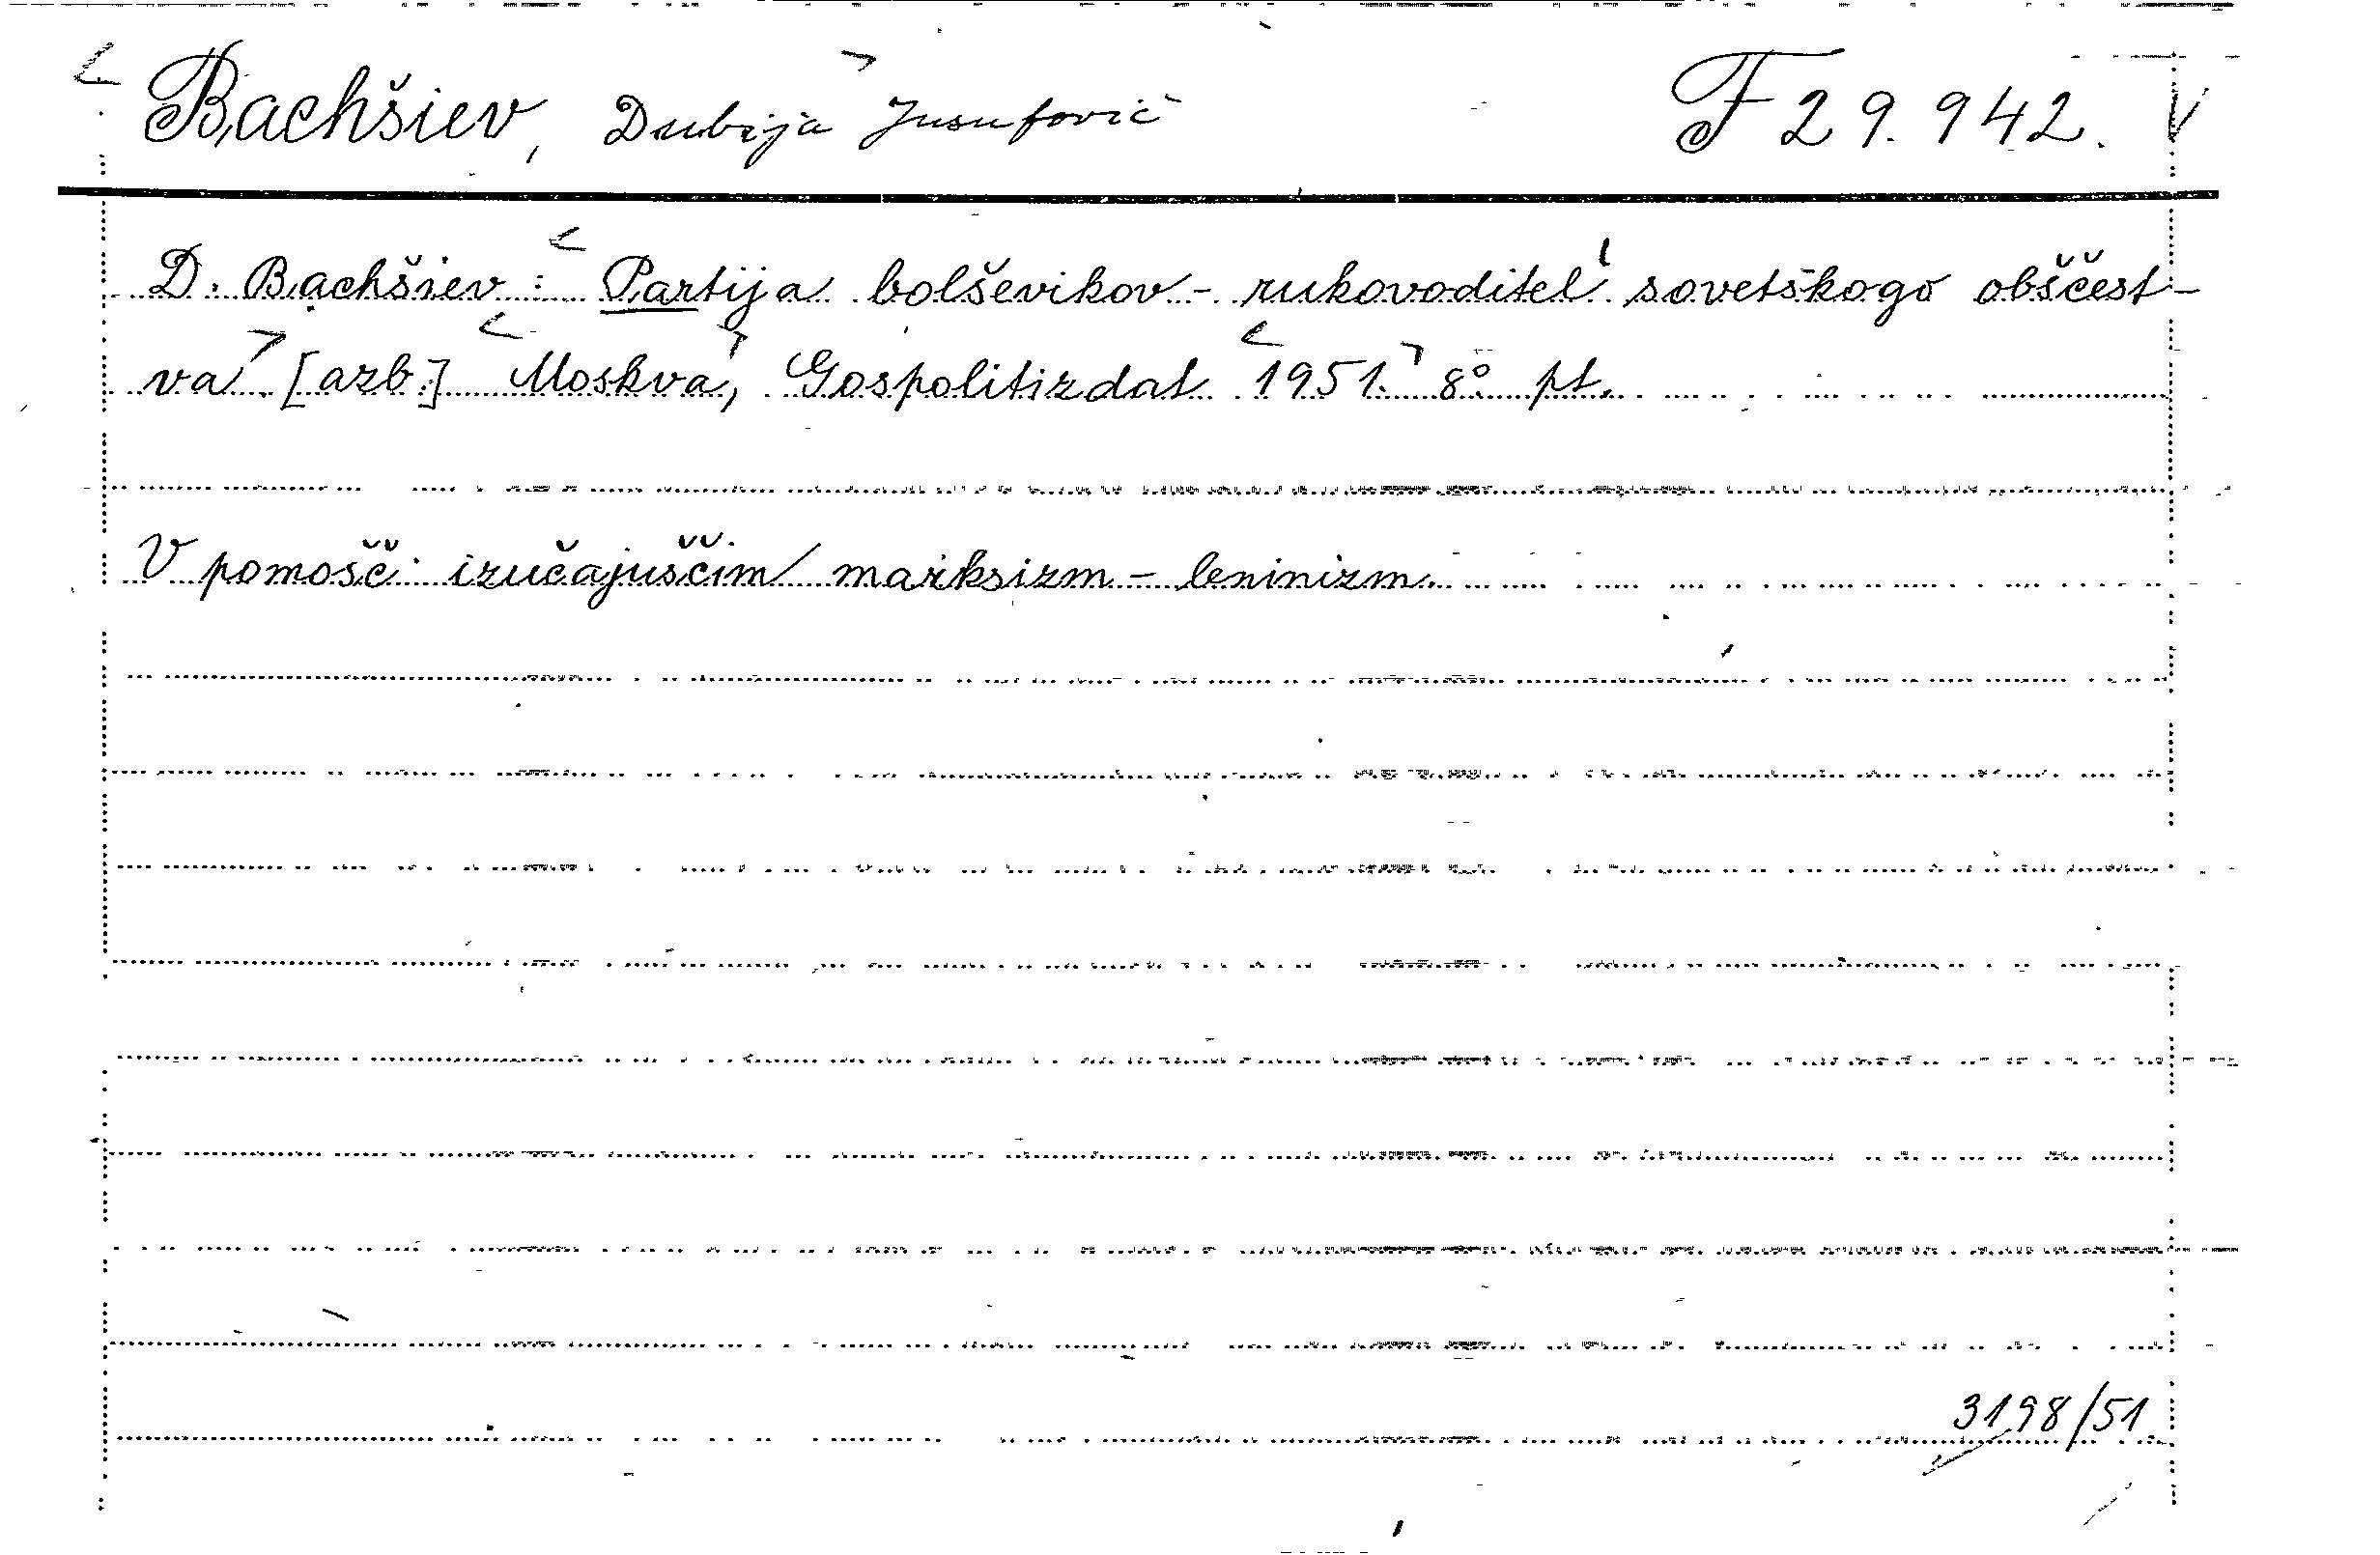 Bachšiev, Dubija Jusufovič F 29.942.
D. Bachšiev: Partija bolševikov - rukovoditel' sovetskogo obščest-
va. [azb.] Moskva, Gospolitizdat 1951. 8° pt.
V pomošč' izučajuščim marksizm - leninizm.
3198/51